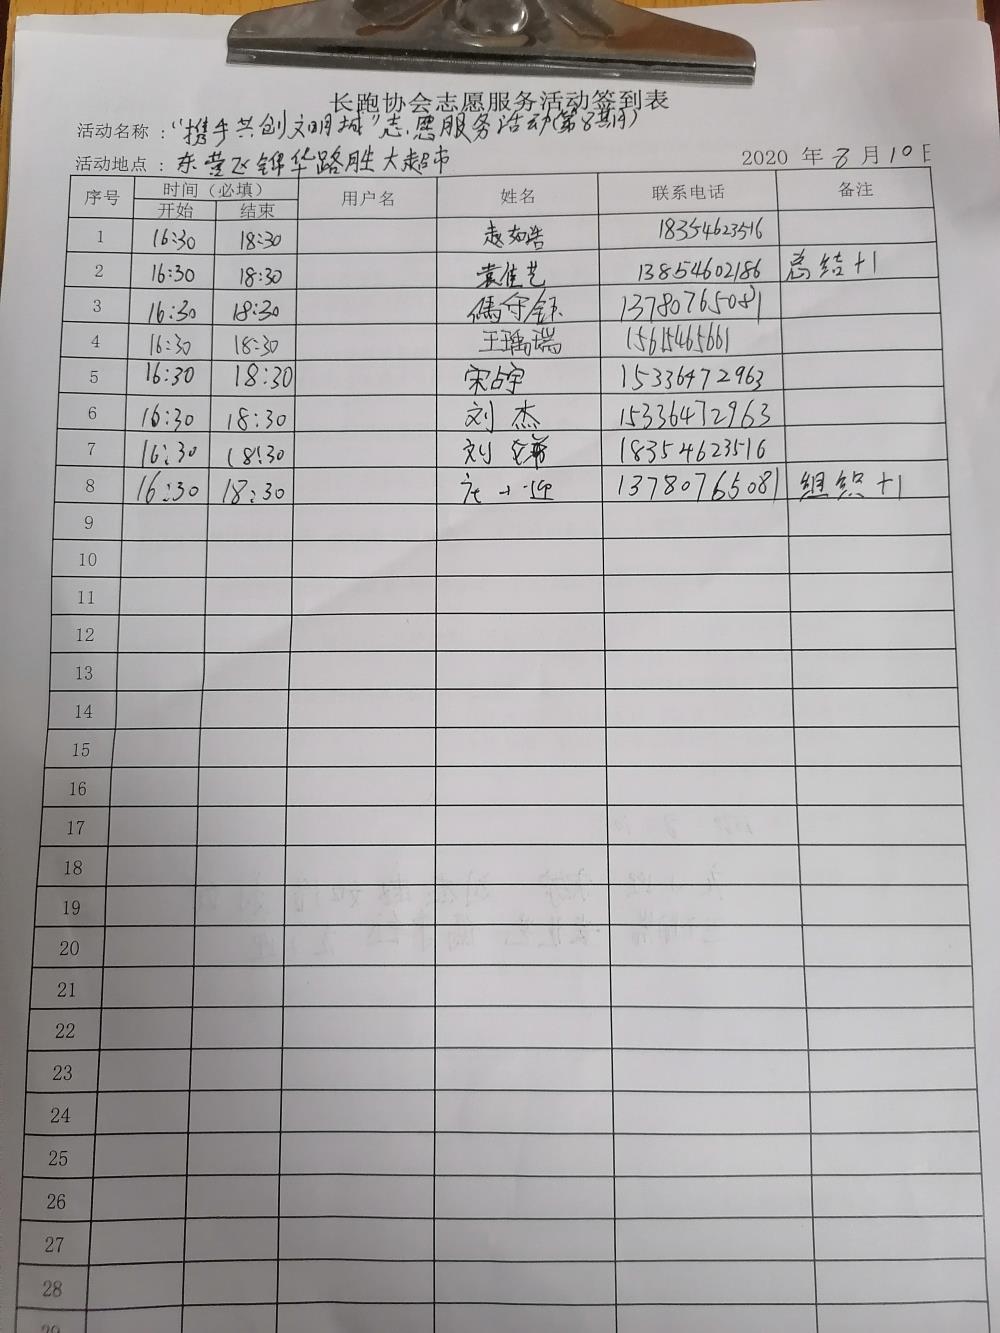 长跑协会志愿服务活动签到表
活动名称："携手共创文明城"志愿服务活动(第8期)
活动地点：东营区锦华路胜大超市 2020 年 8 月 10 日
序号 时间（必填） 用户名 姓名 联系电话 备注
开始 结束
1 16:30 18:30 赵如浩 18354623516
2 16:30 18:30 袁佳艺 13854602186 总结+1
3 16:30 18:30 守钰 13780765081
4 16:30 18:30 王瑀瑞 15615465661
5 16:30 18:30 宋占宇 15336472963
6 16:30 18:30 刘杰 15336472963
7 16:30 18:30 刘 18354623516
8 16:30 18:30 小迎 13780765081 组织+1
9
10
11
12
13
14
15
16
17
18
19
20
21
22
23
24
25
26
27
28
29